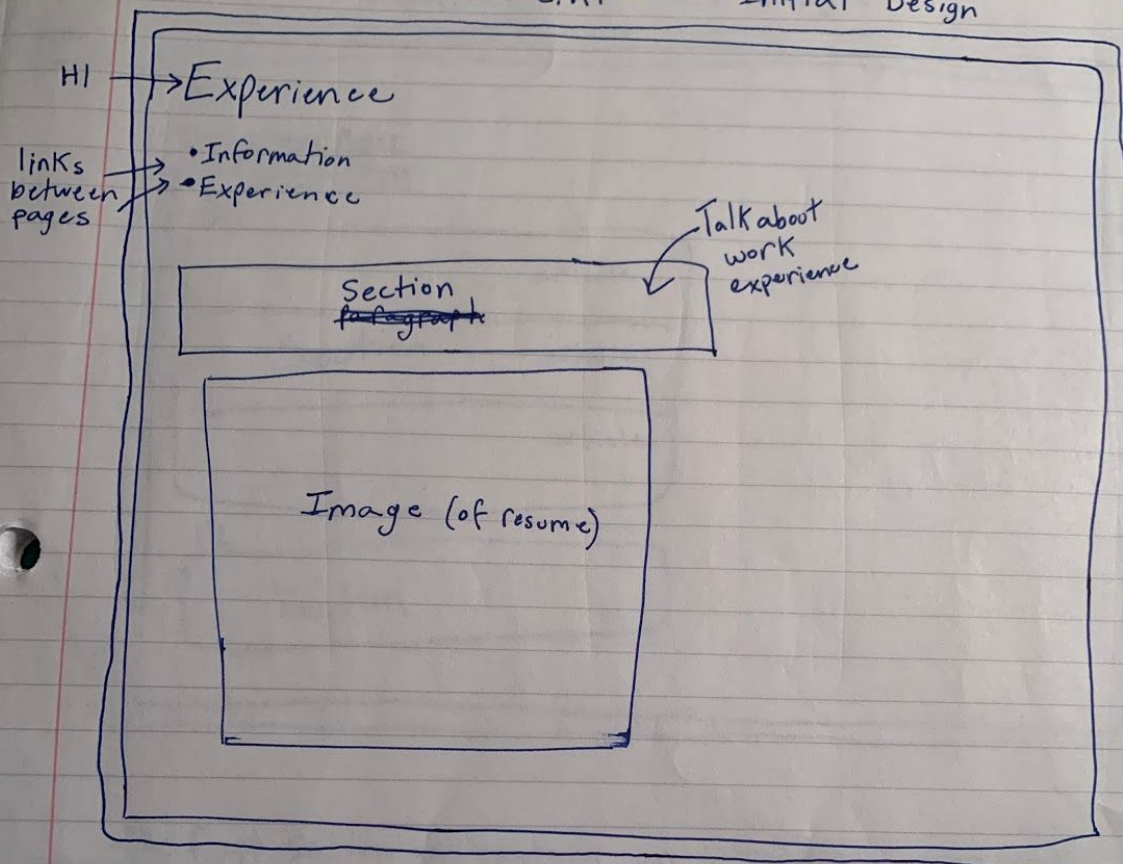 Initial Design
H1
Experience
links
between
pages
• Information
• Experience
Talk about
work
experience
Section
paragraph
Image (of resume)